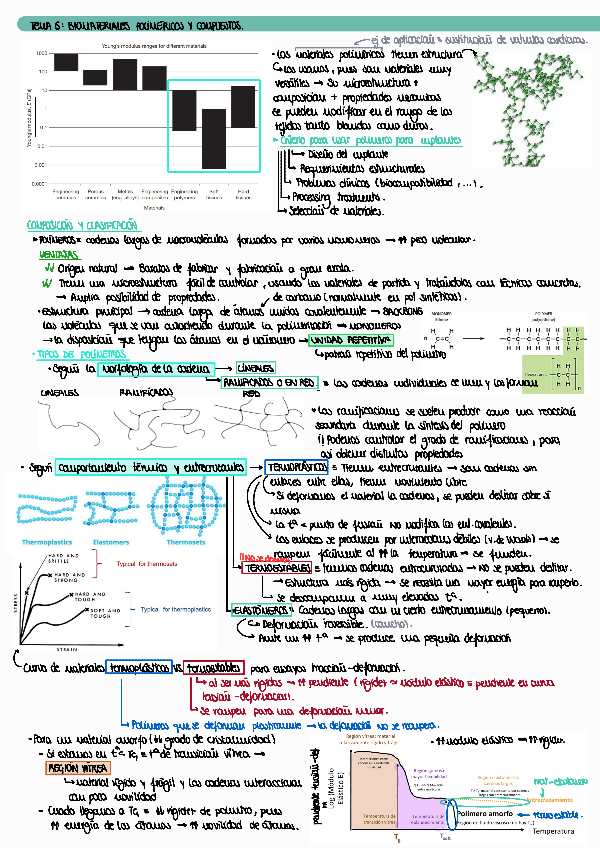 TEMA 6: BIOMATERIALES POLIMÉRICOS Y COMPUESTOS.
ej de aplicación = sustitución de válvulas cardiacas.
Young's modulus ranges for different materials
Young's modulus, E (GPa)
1000
100
10
1
Engineering ceramics
Porous ceramics
Metals (eng. alloys)
Engineering composites
Engineering polymers
Soft tissues
Hard tissues
Materials
- Los materiales poliméricos tienen estructura
versátiles → Su microestructura +
composición + propiedades mecánicas
se pueden modificar en el rango de los
tejidos tanto blandos como duros.
- Criterio para usar polímeros para implantes
→ Diseño del implante
→ Requerimientos estructurales
→ Problemas clínicos (biocompatibilidad, ...).
→ Processing treatments.
→ Selección de materiales.
COMPOSICIÓN Y CLASIFICACIÓN
POLÍMEROS = cadenas largas de macromoléculas formadas por varios monómeros → ↑↑ peso molecular.
VENTAJAS
Origen natural → Baratos de fabricar y fabricación a gran escala.
Tienen una microestructura fácil de controlar, usando los materiales de partida y tratándolos con técnicas concretas.
→ Amplia posibilidad de propiedades.
de carbono (normalmente en pol sintéticos).
- Estructura principal → cadena larga de átomos unidos covalentemente → BACKBONE
Las moléculas que se van añadiendo durante la polimerización → MONÓMEROS
↳ la disposición que tengan los átomos en el monómero → UNIDAD REPETITIVA
↳ patrón repetitivo del polímero
MONOMER
POLYMER
(polyethylene)
- TIPOS DE POLÍMEROS
· Según la morfología de la cadena → LINEALES
→ RAMIFICADOS O EN RED
LINEALES RAMIFICADOS RED
* Las ramificaciones se suelen producir como una reacción
secundaria durante la síntesis del polímero
Podemos controlar el grado de ramificaciones, para
así obtener distintas propiedades
- Según comportamiento térmico y entrecruzantes → TERMOPLÁSTICOS = Tienen entrecruzantes → son cadenas sin
enlaces entre ellas, tienen movimiento libre
Thermoplastics Elastomers Thermosets
↳ La tª = punto de fusión no modifica los enl. covalentes.
↳ Los enlaces se producen por interacciones débiles (v. de Waals) → se
rompen fácilmente al ↑↑ la temperatura → se funden.
TERMOESTABLES = tenemos cadenas entrecruzadas → no se pueden deslizar.
↳ Estructura más rígida → se necesita una mayor energía para romperlo.
↳ Se descomponen a muy elevadas tª.
ELASTÓMEROS = Cadenas largas con un cierto entrecruzamiento (pequeño).
↳ Deformación reversible. (caucho).
↳ Ante un ↑↑ tª → se produce una pequeña deformación
HARD AND BRITTLE
HARD AND STRONG
HARD AND TOUGH
SOFT AND TOUGH
Typical for thermosets
Typical for thermoplastics
STRESS
STRAIN
Curva de materiales termoplásticos vs termoestables para ensayos tracción-deformación.
↳ al ser más rígidos → ↑↑ pendiente (rigidez ≈ módulo elástico = pendiente en curva
tensión-deformación).
↳ Se rompen para una deformación menor.
↳ Polímeros que se deforman plásticamente → la deformación no se recupera.
- Para un material amorfo (↓↓ grado de cristalinidad)
- Si estamos en tª < Tg = tª de transición vítrea →
REGIÓN VÍTREA
↳ material rígido y frágil y las cadenas interaccionan
con poca movilidad
- Cuando llegamos a Tg = ↓↓ rigidez de polímero, pues
↑↑ energía de los átomos → ↑↑ movilidad de átomos.
- ↑↑ Módulo elástico → ↑↑ rigidez.
Región vítrea: material relativamente rígido y frágil
Log (Módulo Elástico E)
Región gomosa: mayor flexibilidad
Temperatura de transición vítrea
Temperatura de reblandecimiento
Entrecruzamiento
Polímero amorfo
Temperatura
Tg